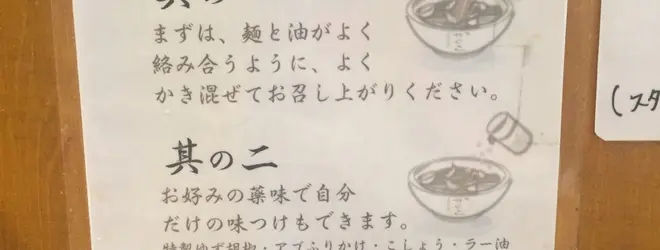 其の
まずは、麺と油がよく
絡み合うように、よく
かき混ぜてお召し上がりください。
其の二
お好みの薬味で自分
だけの味つけもできます。
特製ゆず胡椒・アブふりかけ・こしょう・ラー油
(スタ